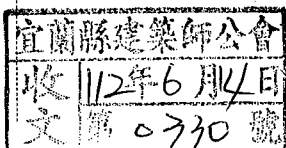 宜蘭縣建築師公會
收 112年6月14日
文 第 0330 號